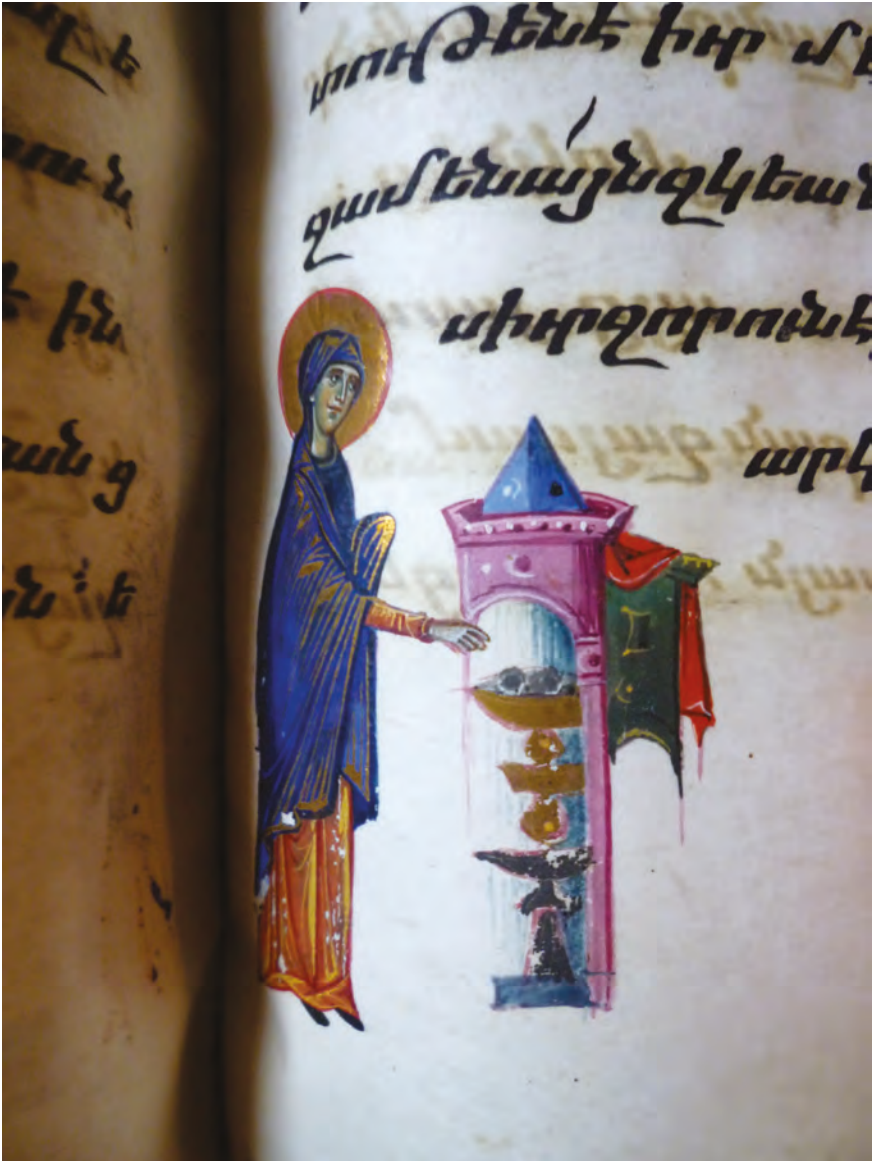 լե
ուն
ին
անց
ն ։ ե
տութենէ իւր մէ
զամենա՛յն զկեան
ս իւր զոր ունէ
արկ